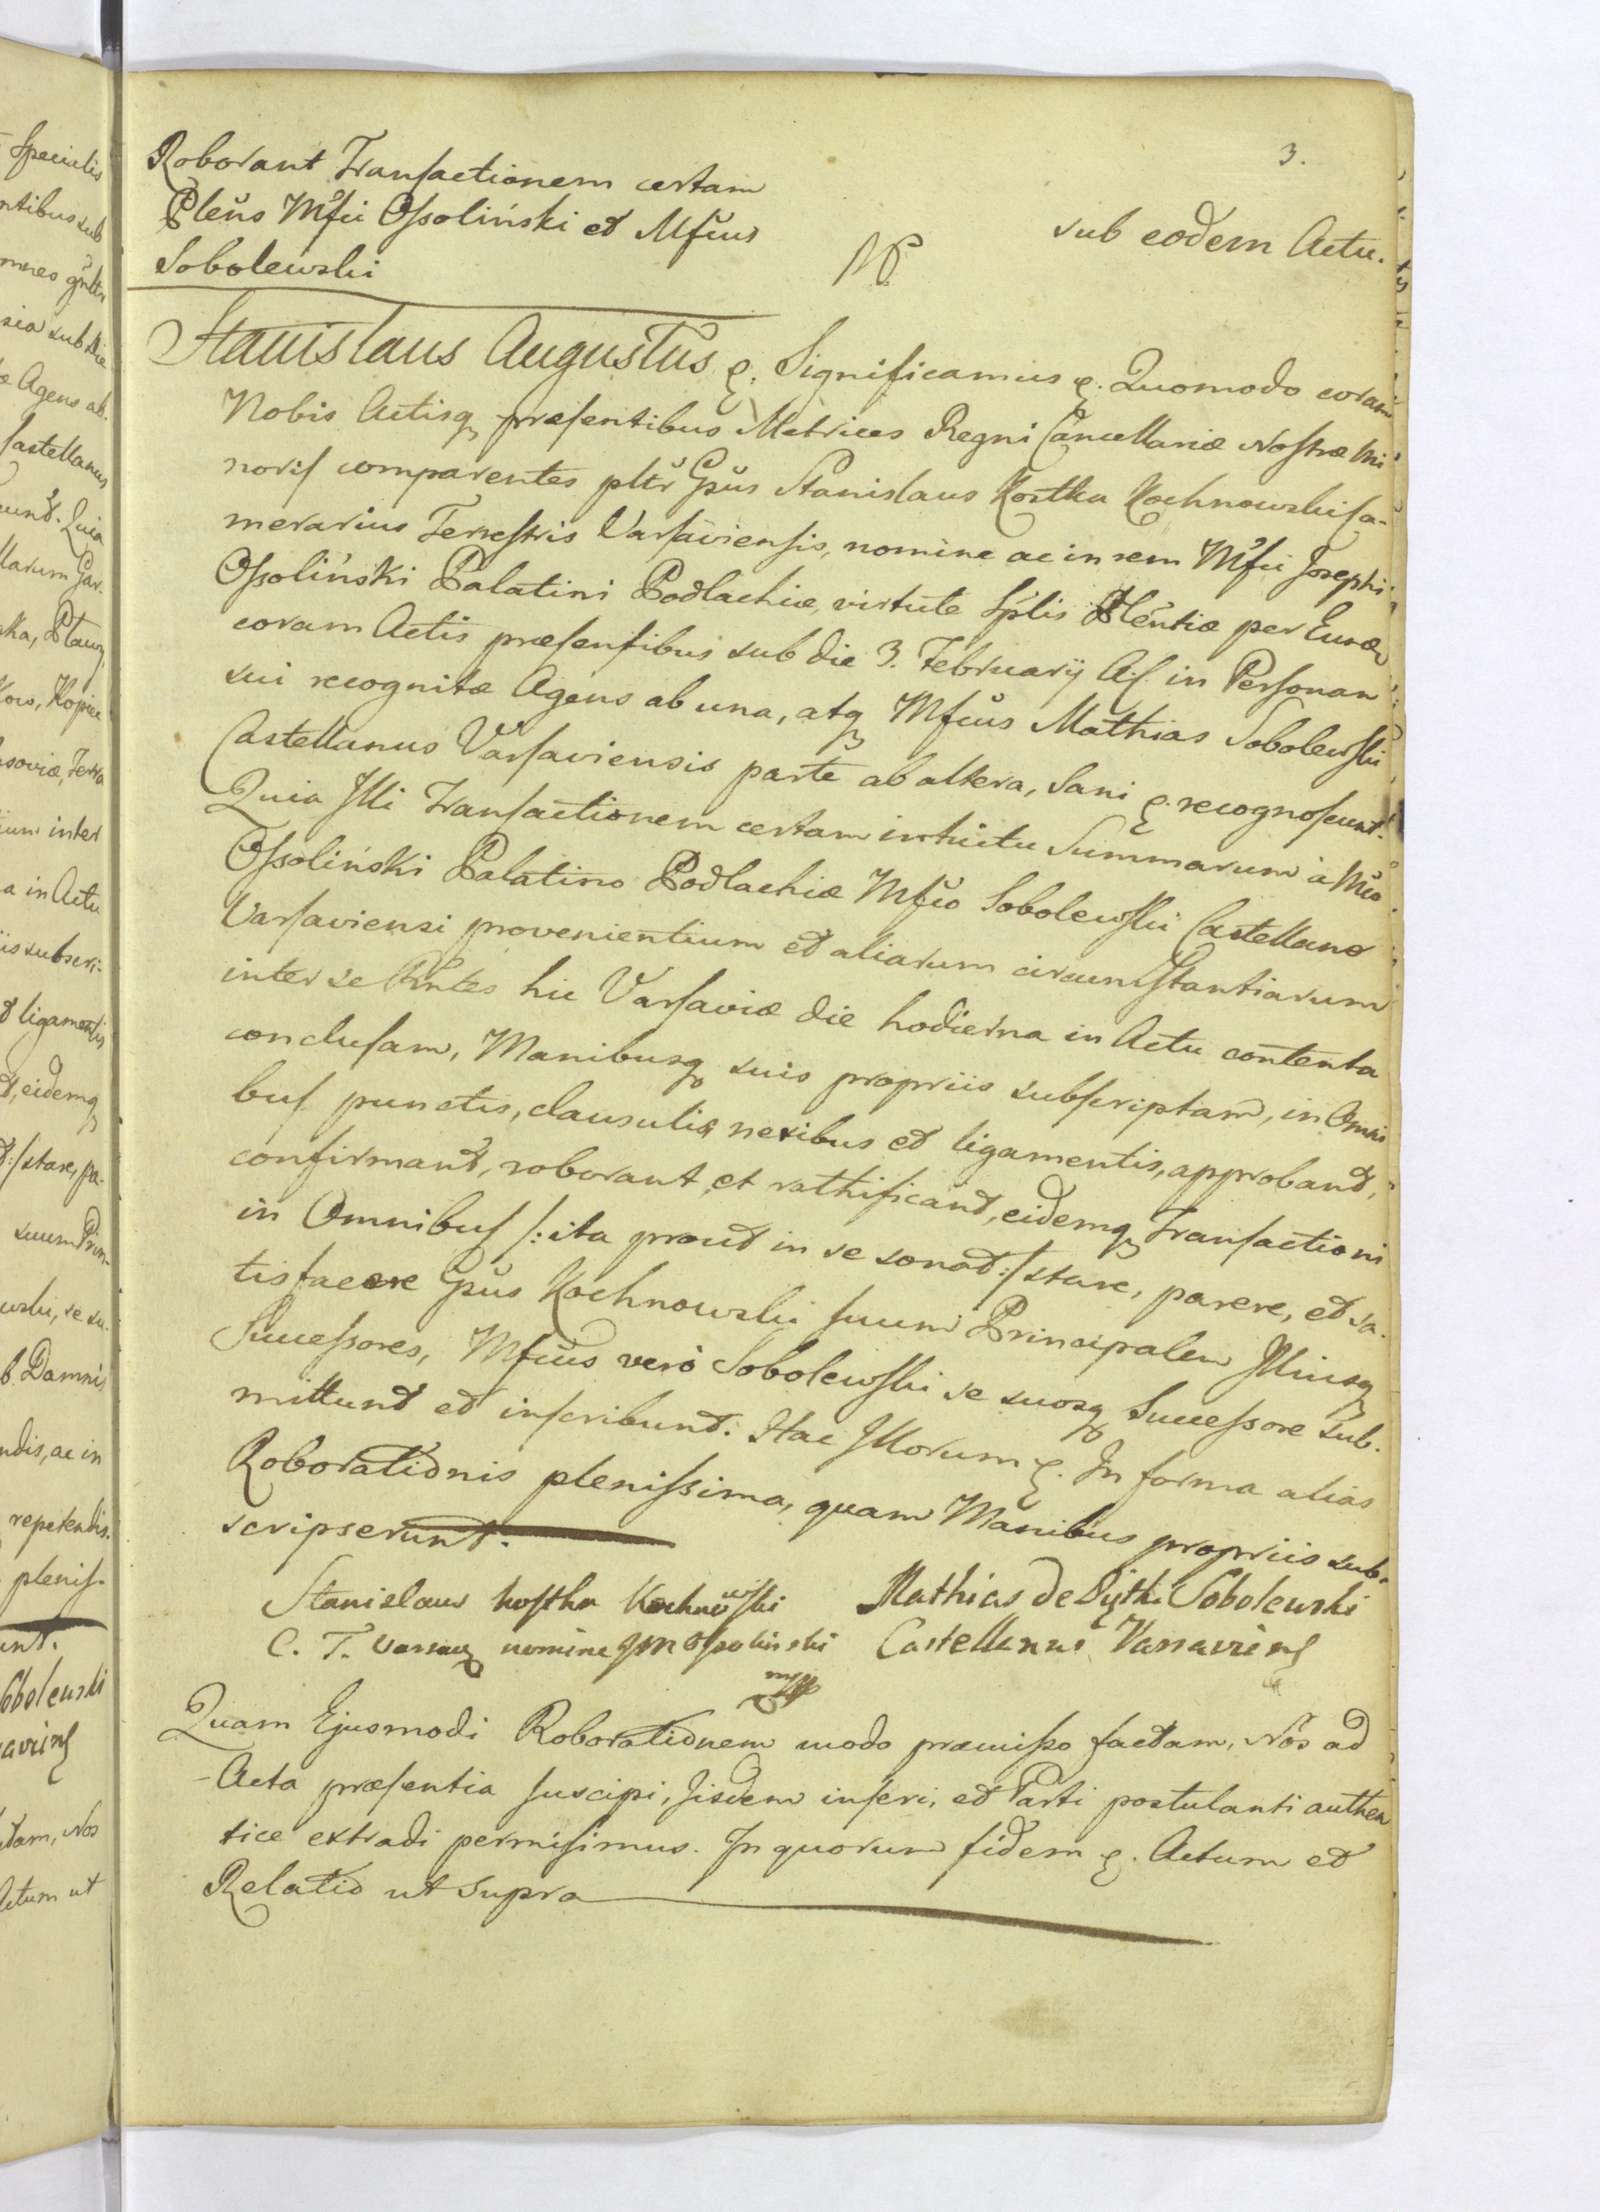 3.
Roborant Transactionem certam
Plenŭs Mfci Ossoliński et Mfcus
Sobolewski
sub eodem Actu.
Stanislaus Augustus &. Significamus &. Quomodo coram
Nobis Actisq præsentibus Metrices Regni Cancellariæ Nostræ Mi
noris comparentes pltr Gsus Stanislaus Kostka Kochnowski Ca-
merarius Terrestris Varsaviensis, nomine ac in rem Mfci Josephi
Ossoliński Palatini Podlachiæ, virtute Splis Plentiæ per Eund
coram Actis præsentibus sub die 3. February A.c. in Personam
sui recognitæ Agens ab una, atq Mfcus Mathias Sobolewski
Castellanus Varsaviensis parte ab altera, Sani &. recognoscunt.
Quia Illi Transactionem certam intuitu Summarum à Mfco
Ossoliński Palatino Podlachiæ Mfco Sobolewski Castellano
Varsaviensi provenientium et aliarum circumstantiarum
inter se Antes hic Varsaviæ die hodierna in Actu contenta
conclusam, Manibusq suis propriis subscriptam, in Omni
bus punctis, clausulis nexibus et ligamentis, approband,
confirmand, roborant et rathificand, eidemq Transactioni
in Omnibus /: ita proud in se sonad :/ stare, parere, et sa-
tisfacere Gsus Kochnowski suum Principalem Illiusq
Successores, Mfcus verò Sobolewski se suosq Successore sub-
mittund et inscribund. Hac Illorum &. In forma alias
Roborationis plenissima, quam Manibus propriis sub-
scripserunt.
Stanislaus Kostka Kochnowski Mathias de Pięthi Sobolewski
C. T. Varsav nomine JM Ossolinski Castellanus Varsaviens
mpp
Quam Ejusmodi Roborationem modo præmisso factam, Nos ad
Acta præsentia suscipi, Iisdem inseri, et Parti postulanti authen
tice extradi permisimus. In quorum fidem &. Actum et
Relatio ut supra